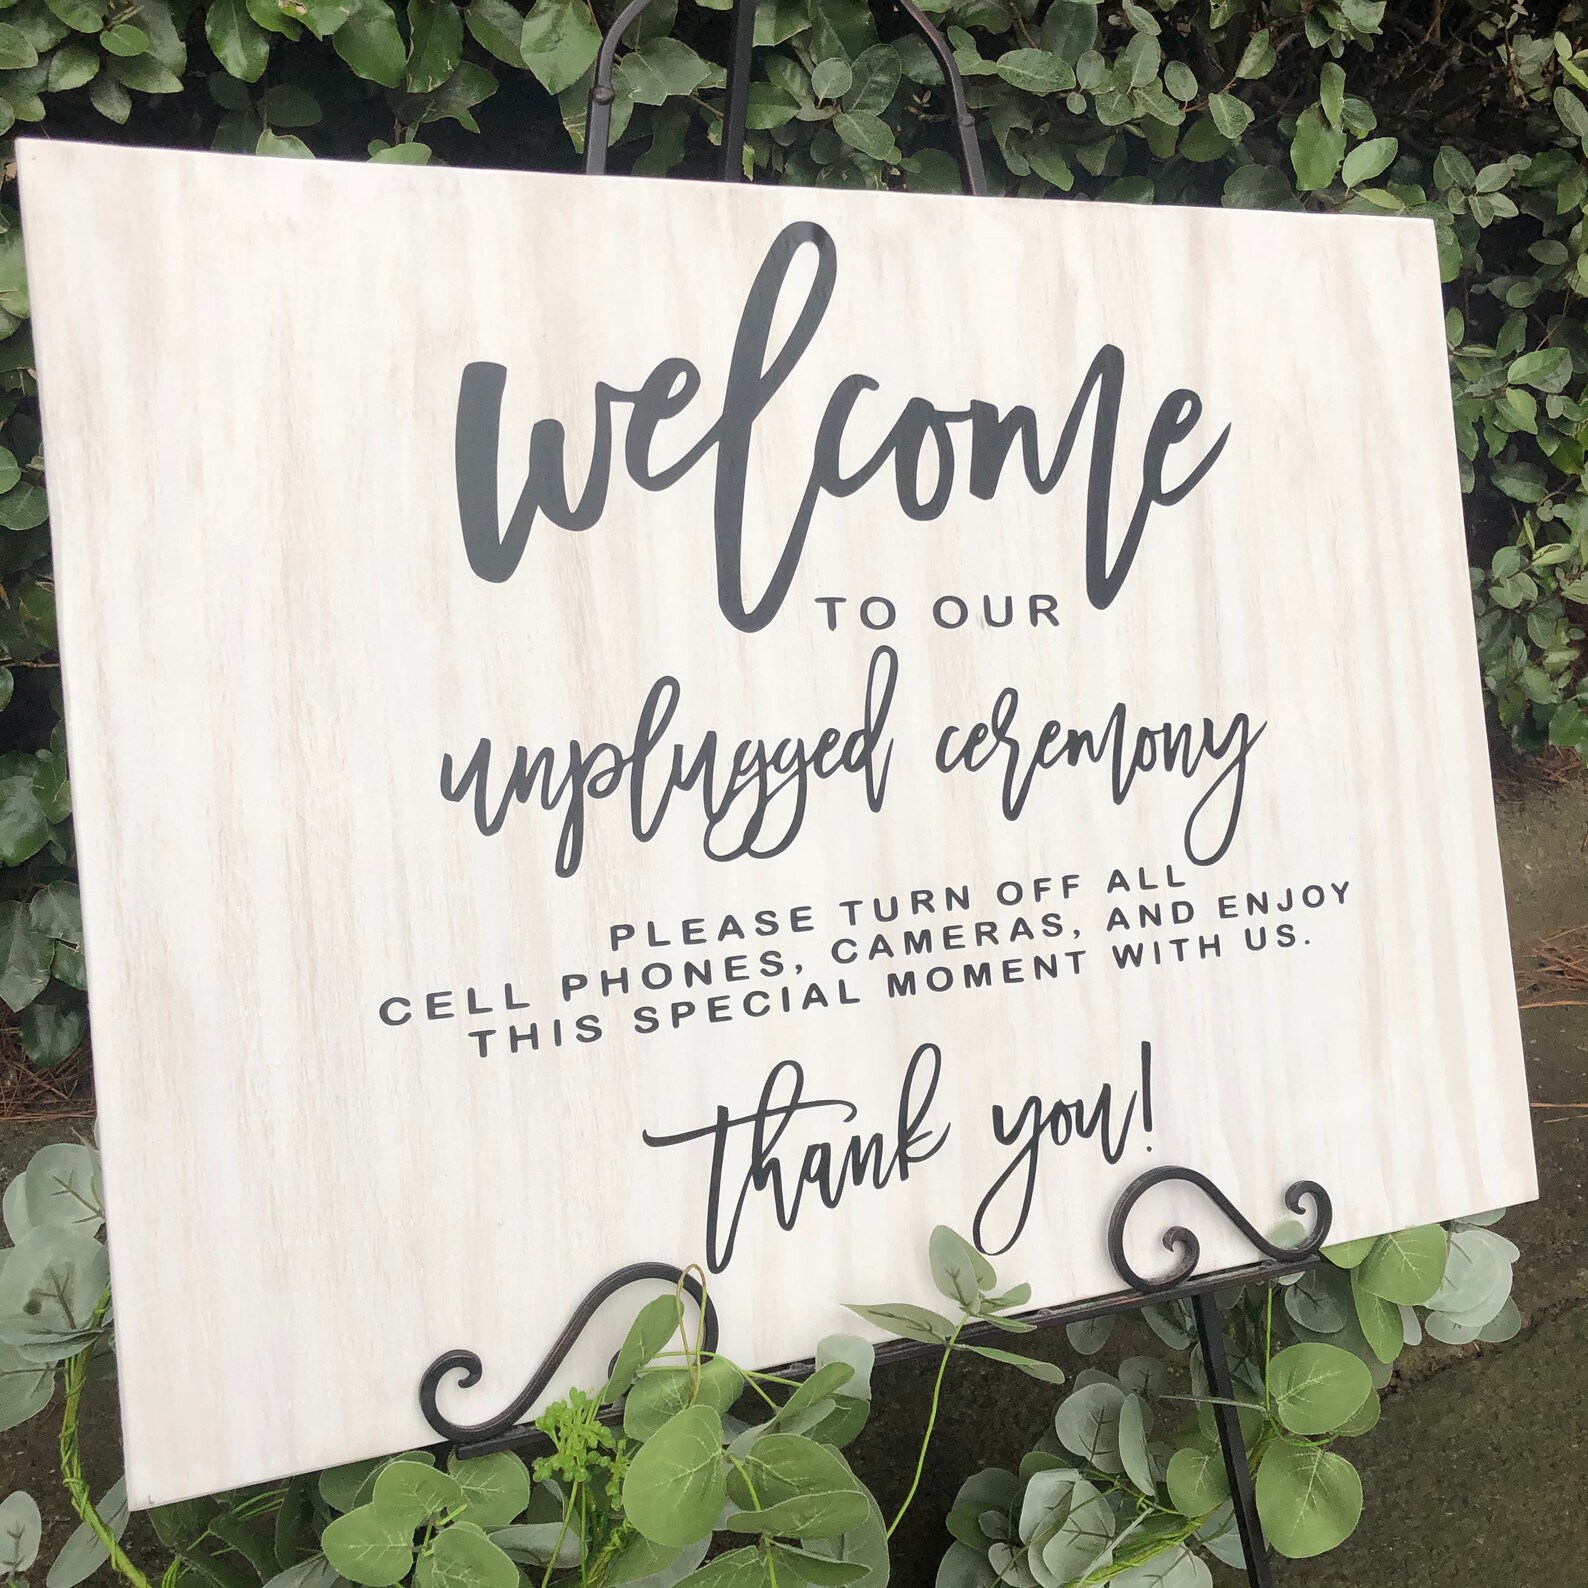 welcome
TO OUR
unplugged ceremony
PLEASE TURN OFF ALL
CELL PHONES, CAMERAS, AND ENJOY
THIS SPECIAL MOMENT WITH US.
thank you!